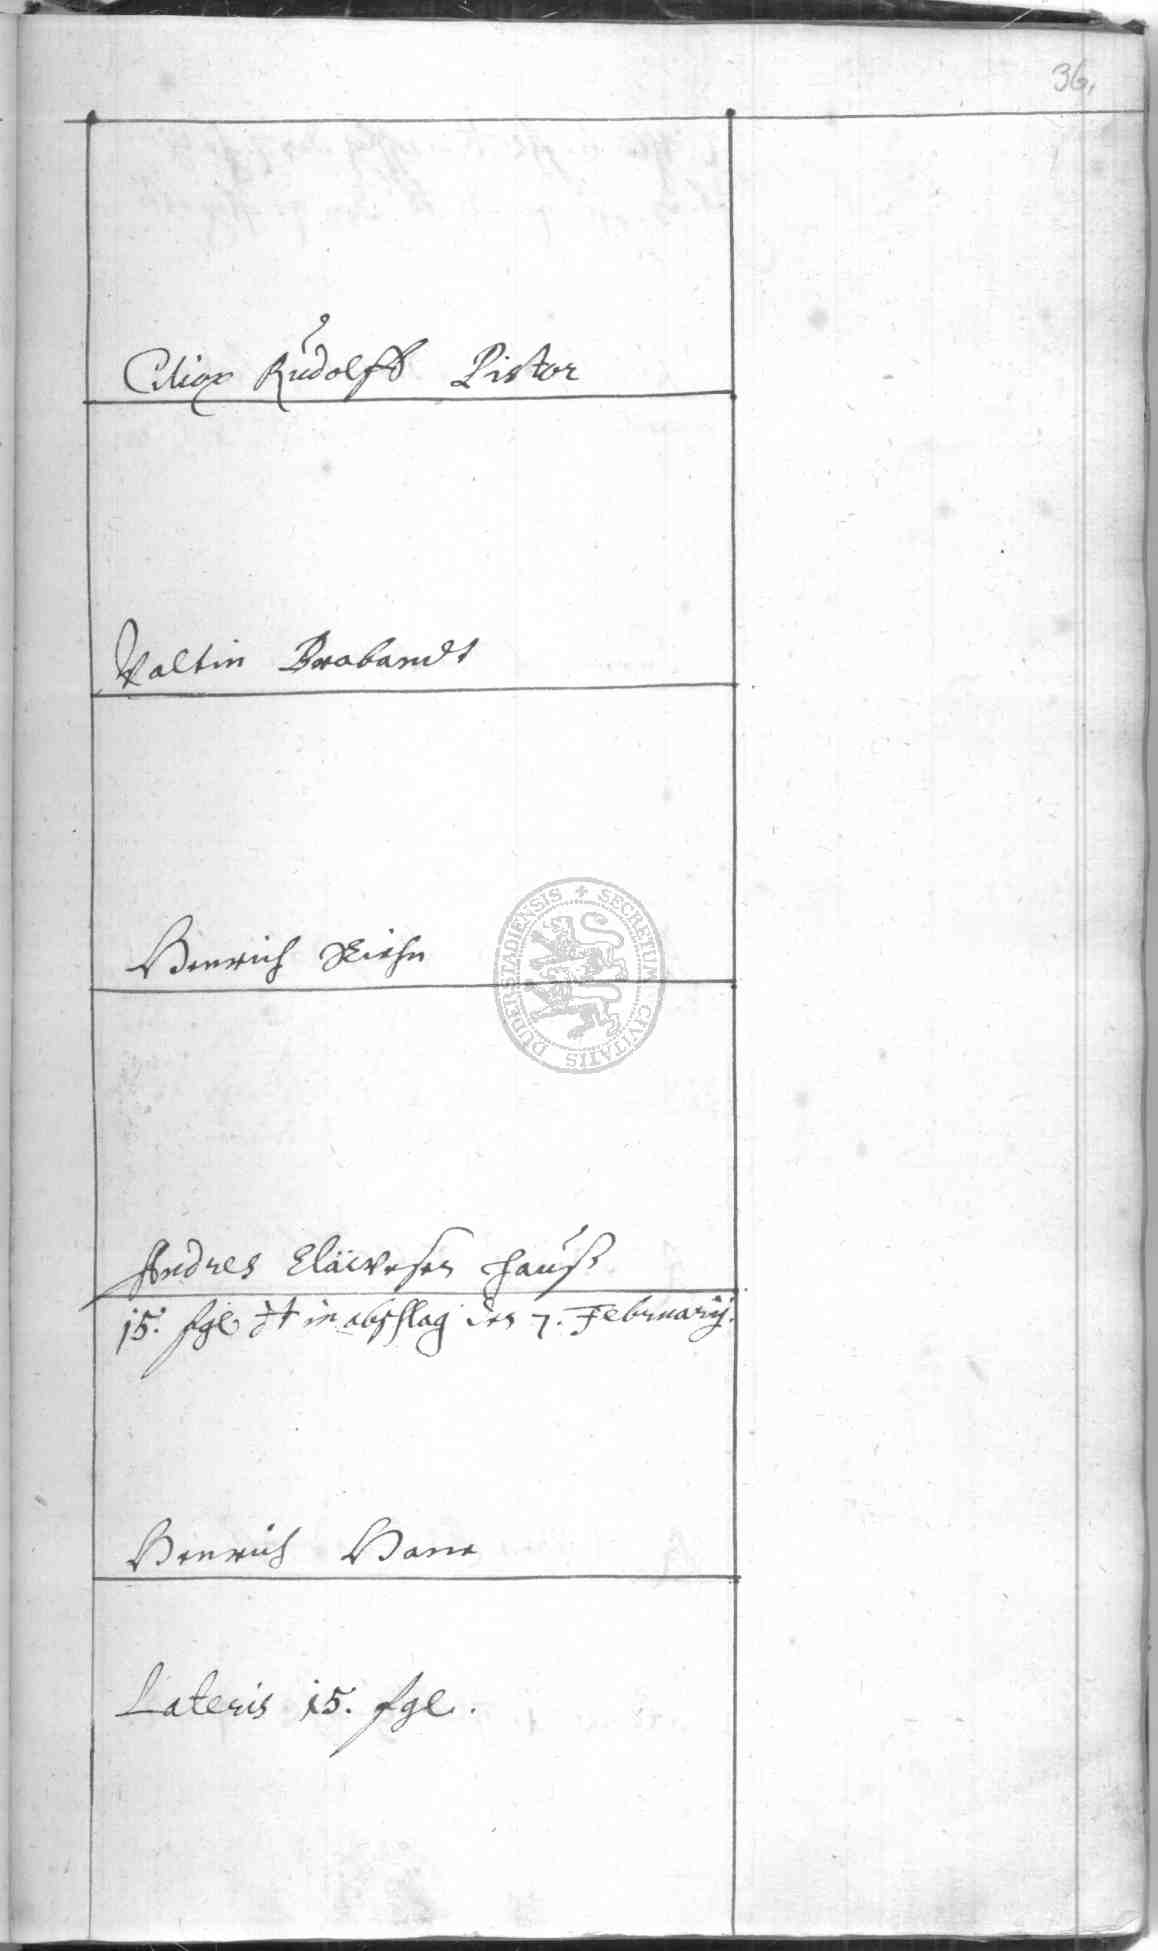 36.
Rudolff Pistor
Valtin Brabandt
Henrich
Andres hauß
15. fgl dt in abschlag den 7. February.
Henrich Hane
Lateris 15. fgl.
DUDERSTADIENSIS + SECRETUM CIVITATIS